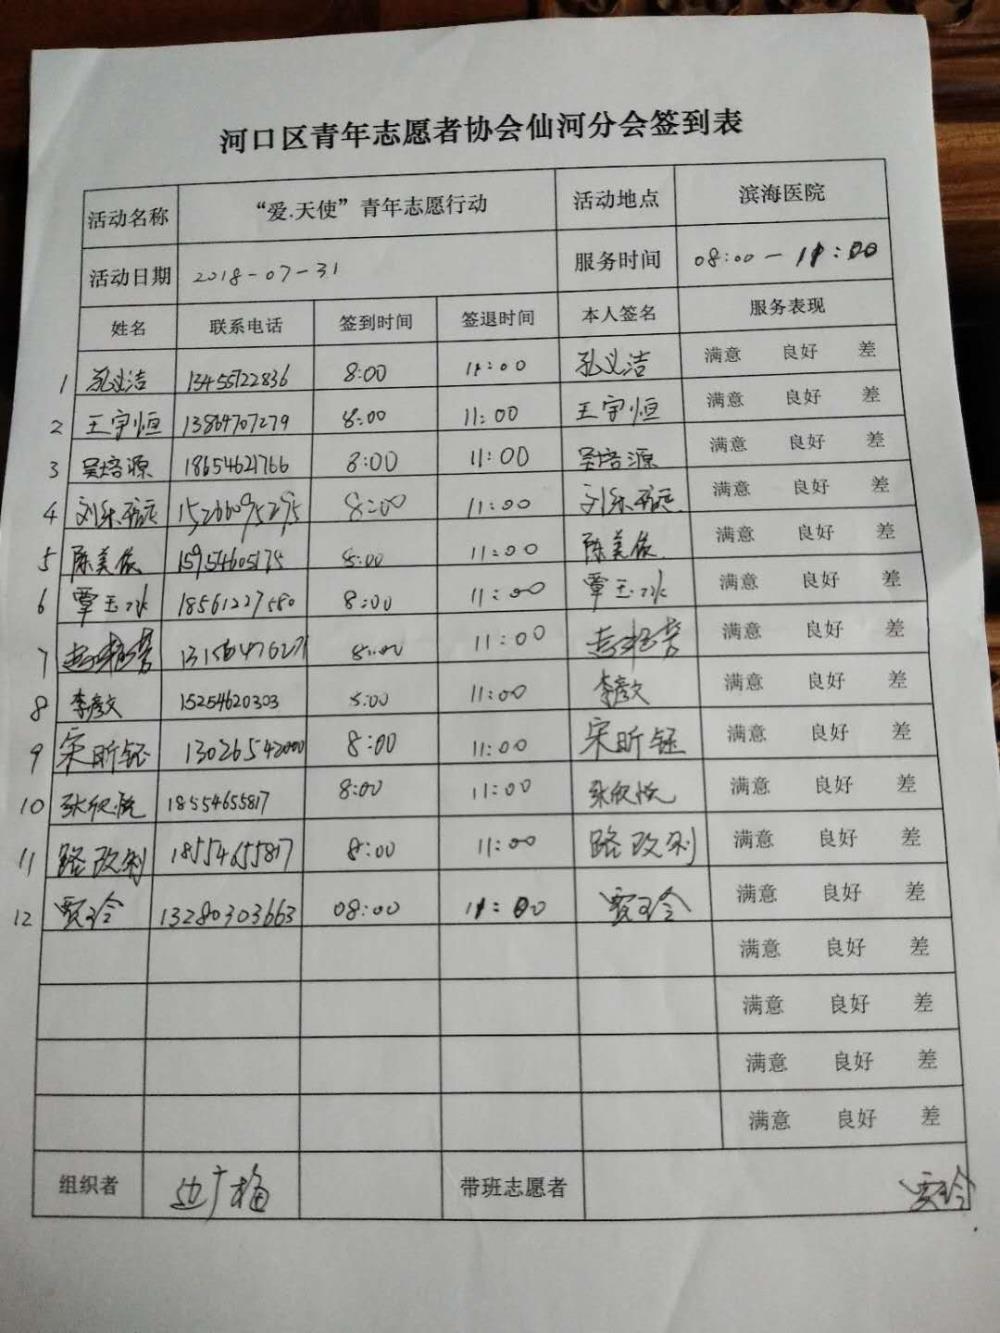 河口区青年志愿者协会仙河分会签到表
活动名称 “爱.天使”青年志愿行动 活动地点 滨海医院
活动日期 2018-07-31 服务时间 08:00-11:00
姓名 联系电话 签到时间 签退时间 本人签名 服务表现
1 孔义洁 13455722836 8:00 11:00 孔义洁 满意 良好 差
2 王宇恒 13864707279 8:00 11:00 王宇恒 满意 良好 差
3 吴培源 18654621766 8:00 11:00 吴培源 满意 良好 差
4 8:00 11:00 满意 良好 差
5 陈美依 8:00 11:00 陈美依 满意 良好 差
6 覃玉冰 18561227580 8:00 11:00 覃玉冰 满意 良好 差
7 8:00 11:00 满意 良好 差
8 李彦文 15254620303 8:00 11:00 李彦文 满意 良好 差
9 宋昕钰 13026542000 8:00 11:00 宋昕钰 满意 良好 差
10 张欣悦 18554655817 8:00 11:00 张欣悦 满意 良好 差
11 路改利 18554655817 8:00 11:00 路改利 满意 良好 差
12 贾玲 13280303663 08:00 11:00 贾玲 满意 良好 差
满意 良好 差
满意 良好 差
满意 良好 差
满意 良好 差
组织者 边广梅 带班志愿者 贾玲